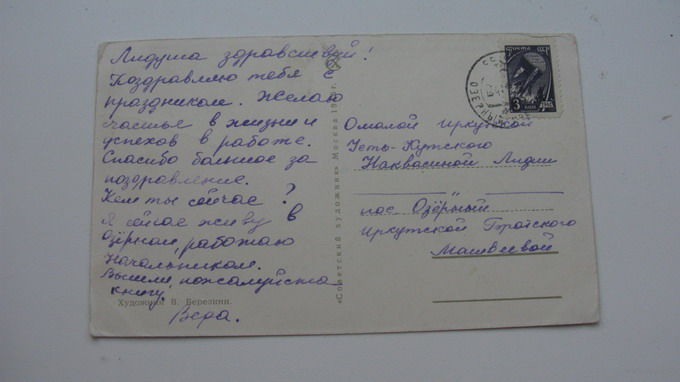 Лидуша здравствуй!
Поздравляю тебя с
праздником. Желаю
счастье в жизни и
успехов в работе.
Спасибо большое за
поздравление.
Кем ты сейчас?
Я сейчас живу в
Озёрном, работаю
Начальником.
Вышли, пожалуйста
книгу.
Вера.
Художник В. Березкин.
«Советский художник» Москва
ПОЧТА СССР
3
Иркутской
Усть-Кутского
Наквасиной Лидии
пос Озёрный
Иркутской Братского
Матвеевой